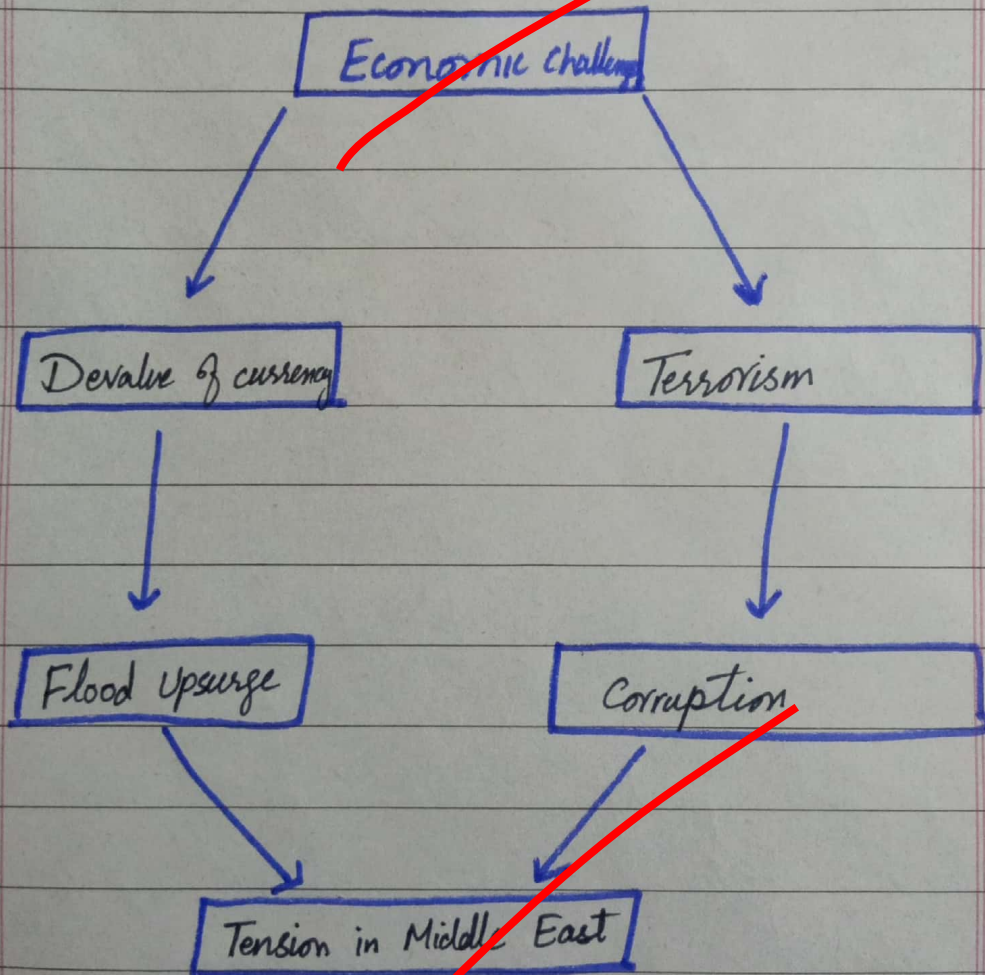 Economic Challenges
Devalue of currency
Terrorism
Flood upsurge
Corruption
Tension in Middle East